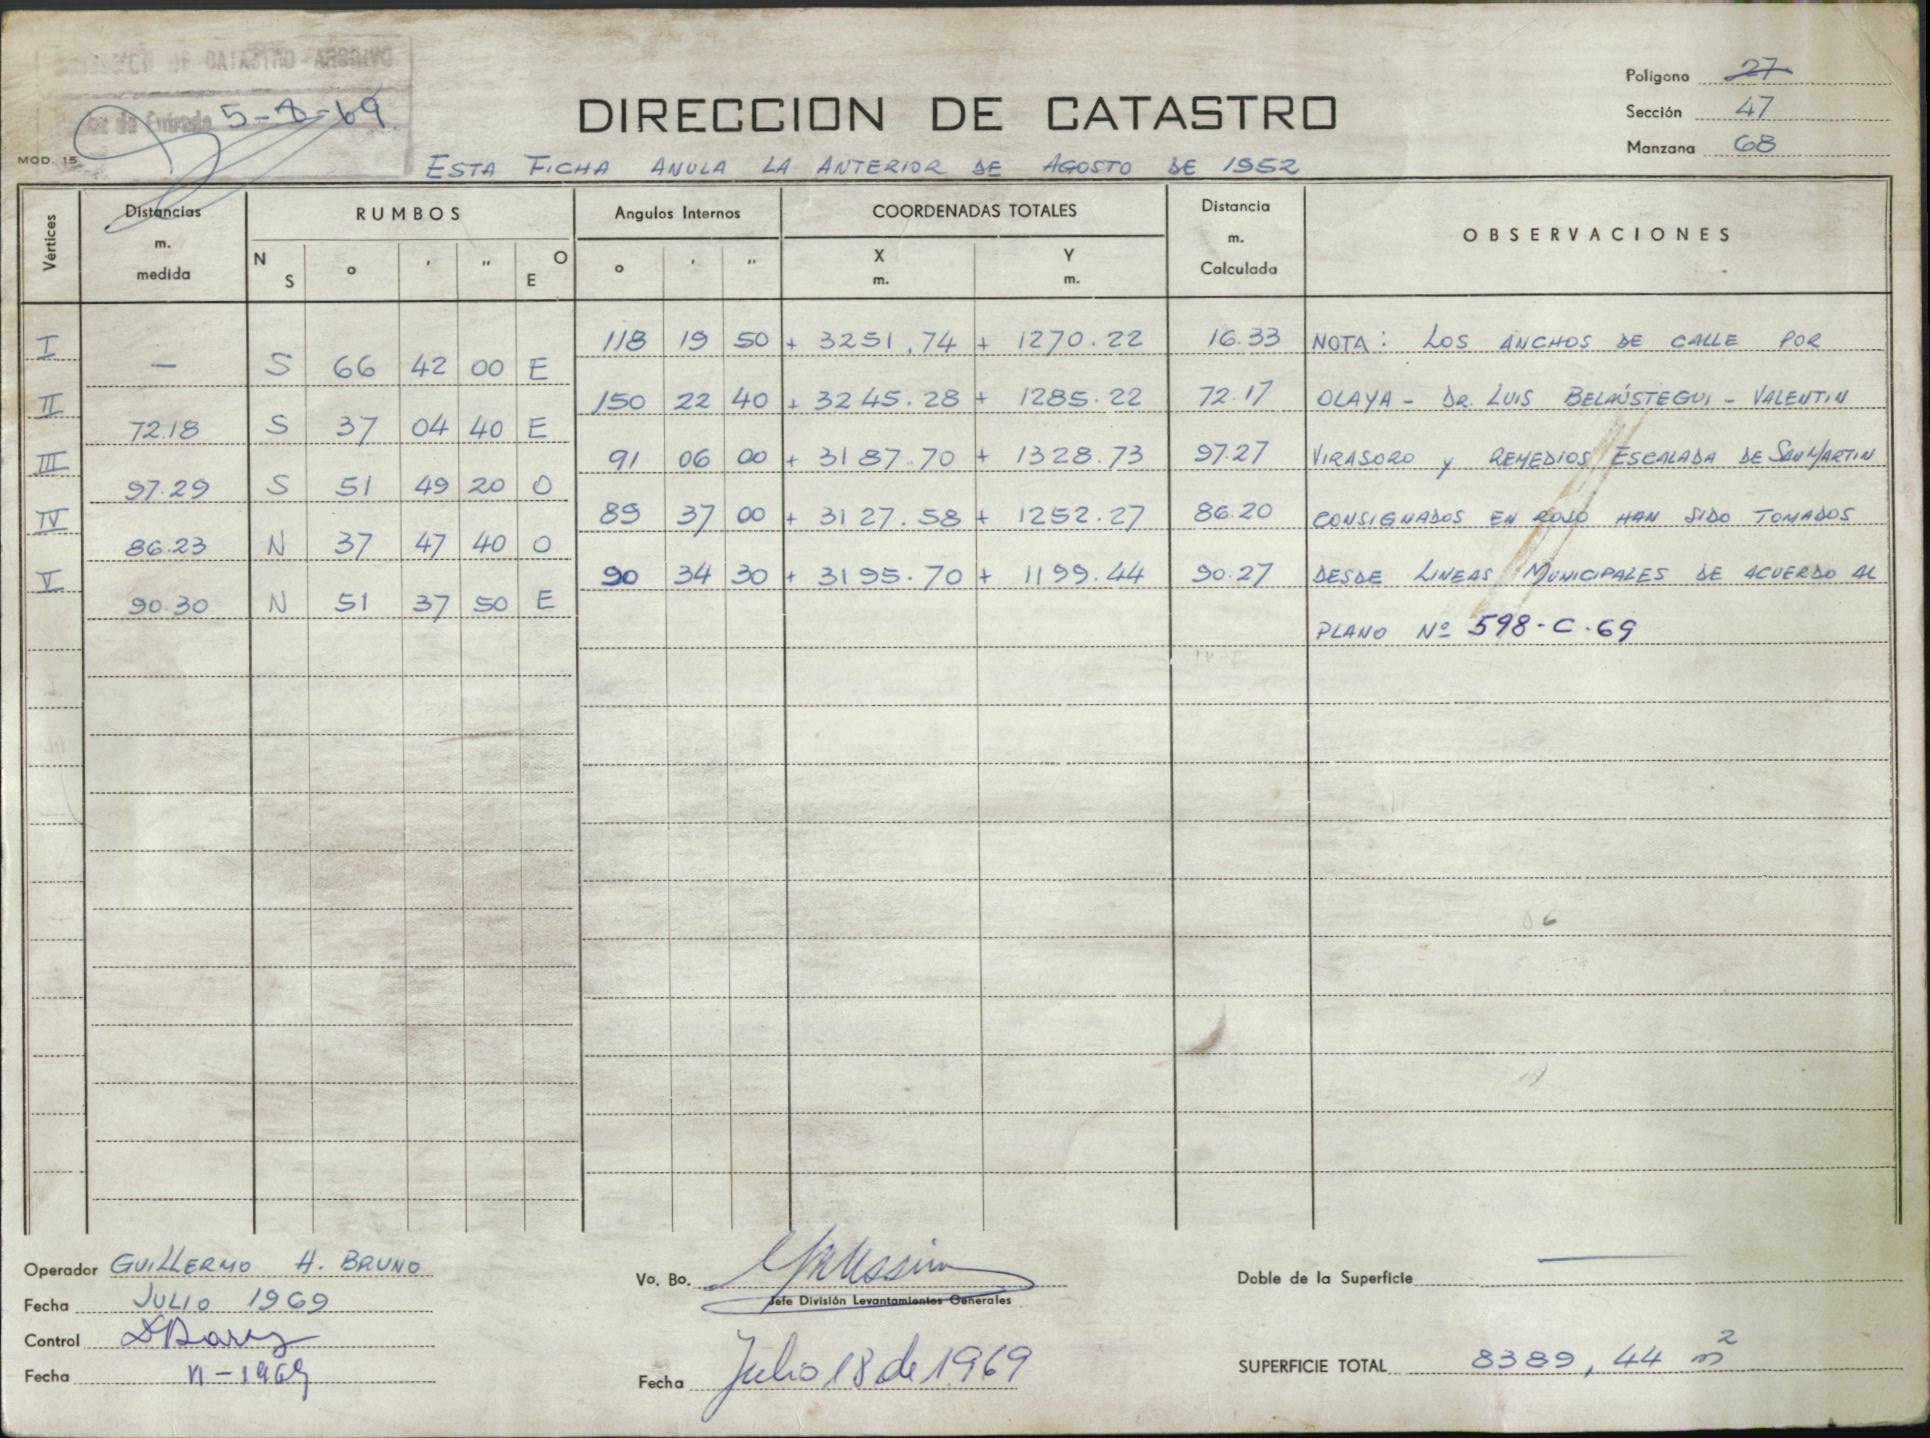 5-8-69
DIRECCION DE CATASTRO
Polígono 27
Sección 47
Manzana 68
MOD. 15
ESTA FICHA ANULA LA ANTERIOR DE AGOSTO DE 1952
Vértices
Distancias m. medida
RUMBOS
N S ° ' " O E
Angulos Internos
° ' "
COORDENADAS TOTALES
X m. Y m.
Distancia m. Calculada
OBSERVACIONES
I 118 19 50 + 3251.74 + 1270.22 16.33 NOTA: LOS ANCHOS DE CALLE POR
— S 66 42 00 E
II 150 22 40 + 3245.28 + 1285.22 72.17 OLAYA - DR. LUIS BELAÚSTEGUI - VALENTIN
72.18 S 37 04 40 E
III 91 06 00 + 3187.70 + 1328.73 97.27 VIRASORO y REMEDIOS ESCALADA DE SAN MARTIN
97.29 S 51 49 20 O
IV 89 37 00 + 3127.58 + 1252.27 86.20 CONSIGNADOS EN ROJO HAN SIDO TOMADOS
86.23 N 37 47 40 O
V 90 34 30 + 3195.70 + 1199.44 90.27 DESDE LINEAS MUNICIPALES DE ACUERDO AL
90.30 N 51 37 50 E
PLANO Nº 598-C-69
Operador GUILLERMO H. BRUNO
Fecha JULIO 1969
Control
Fecha VI-1969
Vo. Bo.
Jefe División Levantamientos Generales
Fecha Julio 18 de 1969
Doble de la Superficie —
SUPERFICIE TOTAL 8389,44 m²